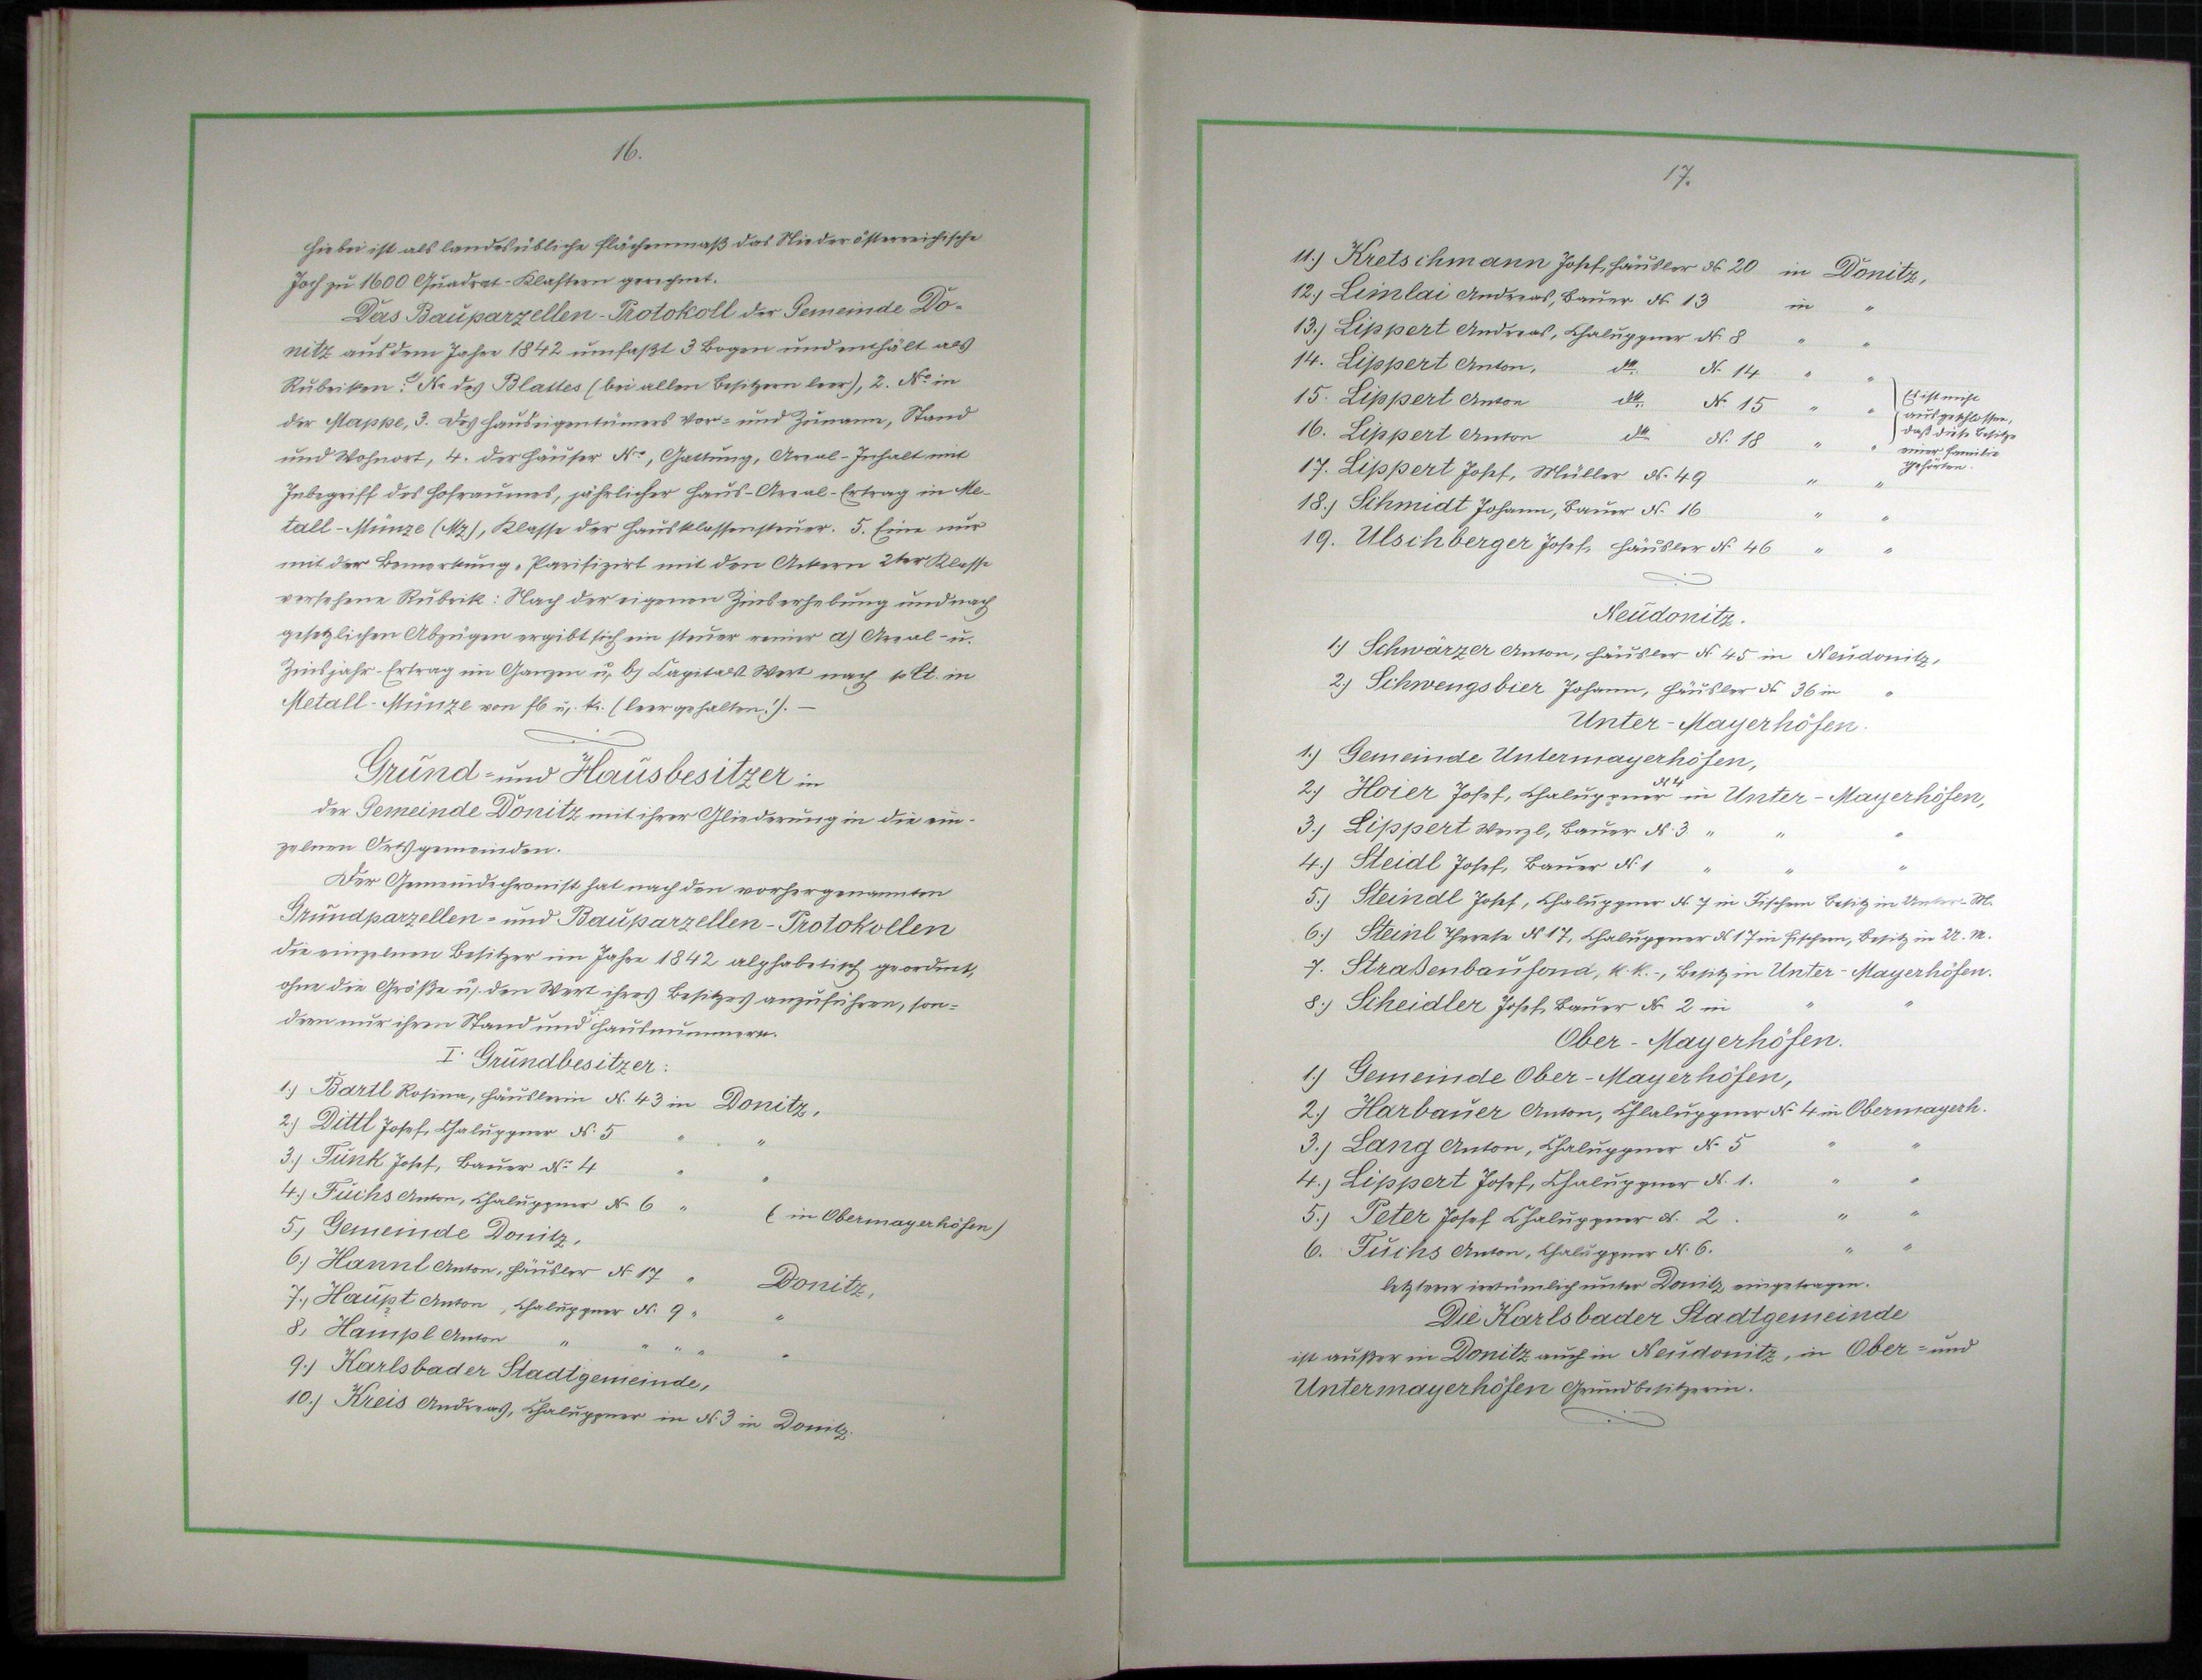 16.
Hiebei ist als landesübliche Flächenmaß das Niederösterreichische
Joch zu 1600 Quadrat-Klaftern gerechnet.
Das Bauparzellen-Protokoll der Gemeinde Do-
nitz aus dem Jahre 1842 umfaßt 3 Bogen und enthält als
Rubriken: 1. No des Blattes (bei allen Besitzern leer), 2. No in
der Mappe, 3. Des Hauseigentümers Vor- und Zuname, Stand
und Wohnort, 4. der Häuser No, Gattung, Areal-Inhalt mit
Inbegriff des Hofraumes, jährlicher Haus-Areal-Ertrag in Me-
tall-Münze (Mz), Klasse der Hausklassensteuer. 5. Eine nur
mit der Bemerkung „Parifizirt mit den Äckern 2ter Klasse
versehene Rubrik: Nach der eigenen Zinserhebung und nach
gesetzlichen Abzügen ergibt sich ein steuer reiner a) Areal- u.
Zinsjahr-Ertrag im Ganzen u. b) Capitals Wert nach plt. in
Metall-Münze von fl u. kr. (leer gehalten!). —
Grund- und Hausbesitzer in
der Gemeinde Donitz mit ihrer Gliederung in die ein-
zelnen Ortsgemeinden.
Der Gemeindechronist hat nach den vorhergenannten
Grundparzellen- und Bauparzellen-Protokollen
die einzelnen Besitzer im Jahre 1842 alphabetisch geordnet,
ohne die Größe u. den Wert ihres Besitzes anzuführen, son-
dern nur ihren Stand und Hausnummern.
I. Grundbesitzer:
1.) Bartl Rosina, Häuslerin N. 43 in Donitz,
2.) Dittl Josef, Chaluppner N. 5 " "
3.) Funk Josef, Bauer N. 4 " "
4.) Fuchs Anton, Chaluppner N. 6 " (in Obermayerhöfen)
5.) Gemeinde Donitz,
6.) Hannl Anton, Häusler N. 17 " Donitz,
7.) Haupt Anton, Chaluppner N. 9 " "
8.) Hampl Anton " " " " "
9.) Karlsbader Stadtgemeinde,
10.) Kreis Andreas, Chaluppner in N. 3 in Donitz.
17.
11.) Kretschmann Josef, Häusler N. 20 in Donitz,
12.) Limlai Andreas, Bauer N. 13 in "
13.) Lippert Andreas, Chaluppner N. 8 " "
14. Lippert Anton, dto. N. 14 " "
15. Lippert Anton dto. N. 15 " "
16. Lippert Anton dto. N. 18 " "
Es ist nicht
ausgeschlossen,
daß diese Besitze
einer Familie
gehörten.
17. Lippert Josef, Müller N. 49 " "
18.) Schmidt Johann, Bauer N. 16 " "
19. Ulschberger Josef, Häusler N. 46 " "
Neudonitz.
1.) Schwärzer Anton, Häusler N. 45 in Neudonitz,
2.) Schwengsbier Johann, Häusler N. 36 in "
Unter-Mayerhöfen.
1.) Gemeinde Untermayerhöfen,
2.) Hoier Josef, Chaluppner N 4 in Unter-Mayerhöfen,
3.) Lippert Wenzl, Bauer N. 3 " " "
4.) Steidl Josef, Bauer N. 1 " " "
5.) Steindl Josef, Chaluppner N. 7 in Fischern Besitz in Unter-M.
6.) Steinl Therese N 17, Chaluppner N 17 in Fischern, Besitz in U. M.
7. Straßenbaufond, k. k.-, Besitz in Unter-Mayerhöfen.
8.) Scheidler Josef, Bauer N. 2 in " "
Ober-Mayerhöfen.
1.) Gemeinde Ober-Mayerhöfen,
2.) Harbauer Anton, Chlaluppner N. 4 in Obermayerh.
3.) Lang Anton, Chaluppner N. 5 " "
4.) Lippert Josef, Chaluppner N. 1. " "
5.) Peter Josef Chaluppner N. 2. " "
6. Fuchs Anton, Chaluppner N. 6. " "
letzterer irrtümlich unter Donitz eingetragen.
Die Karlsbader Stadtgemeinde
ist außer in Donitz auch in Neudonitz, in Ober- und
Untermayerhöfen Grundbesitzerin.